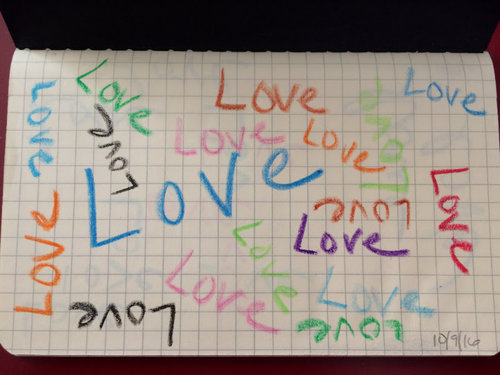 Love
Love
Love
Love
Love
Love
Love
Love
Love
Love
Love
Love
Love
Love
Love
Love
Love
Love
10/9/16